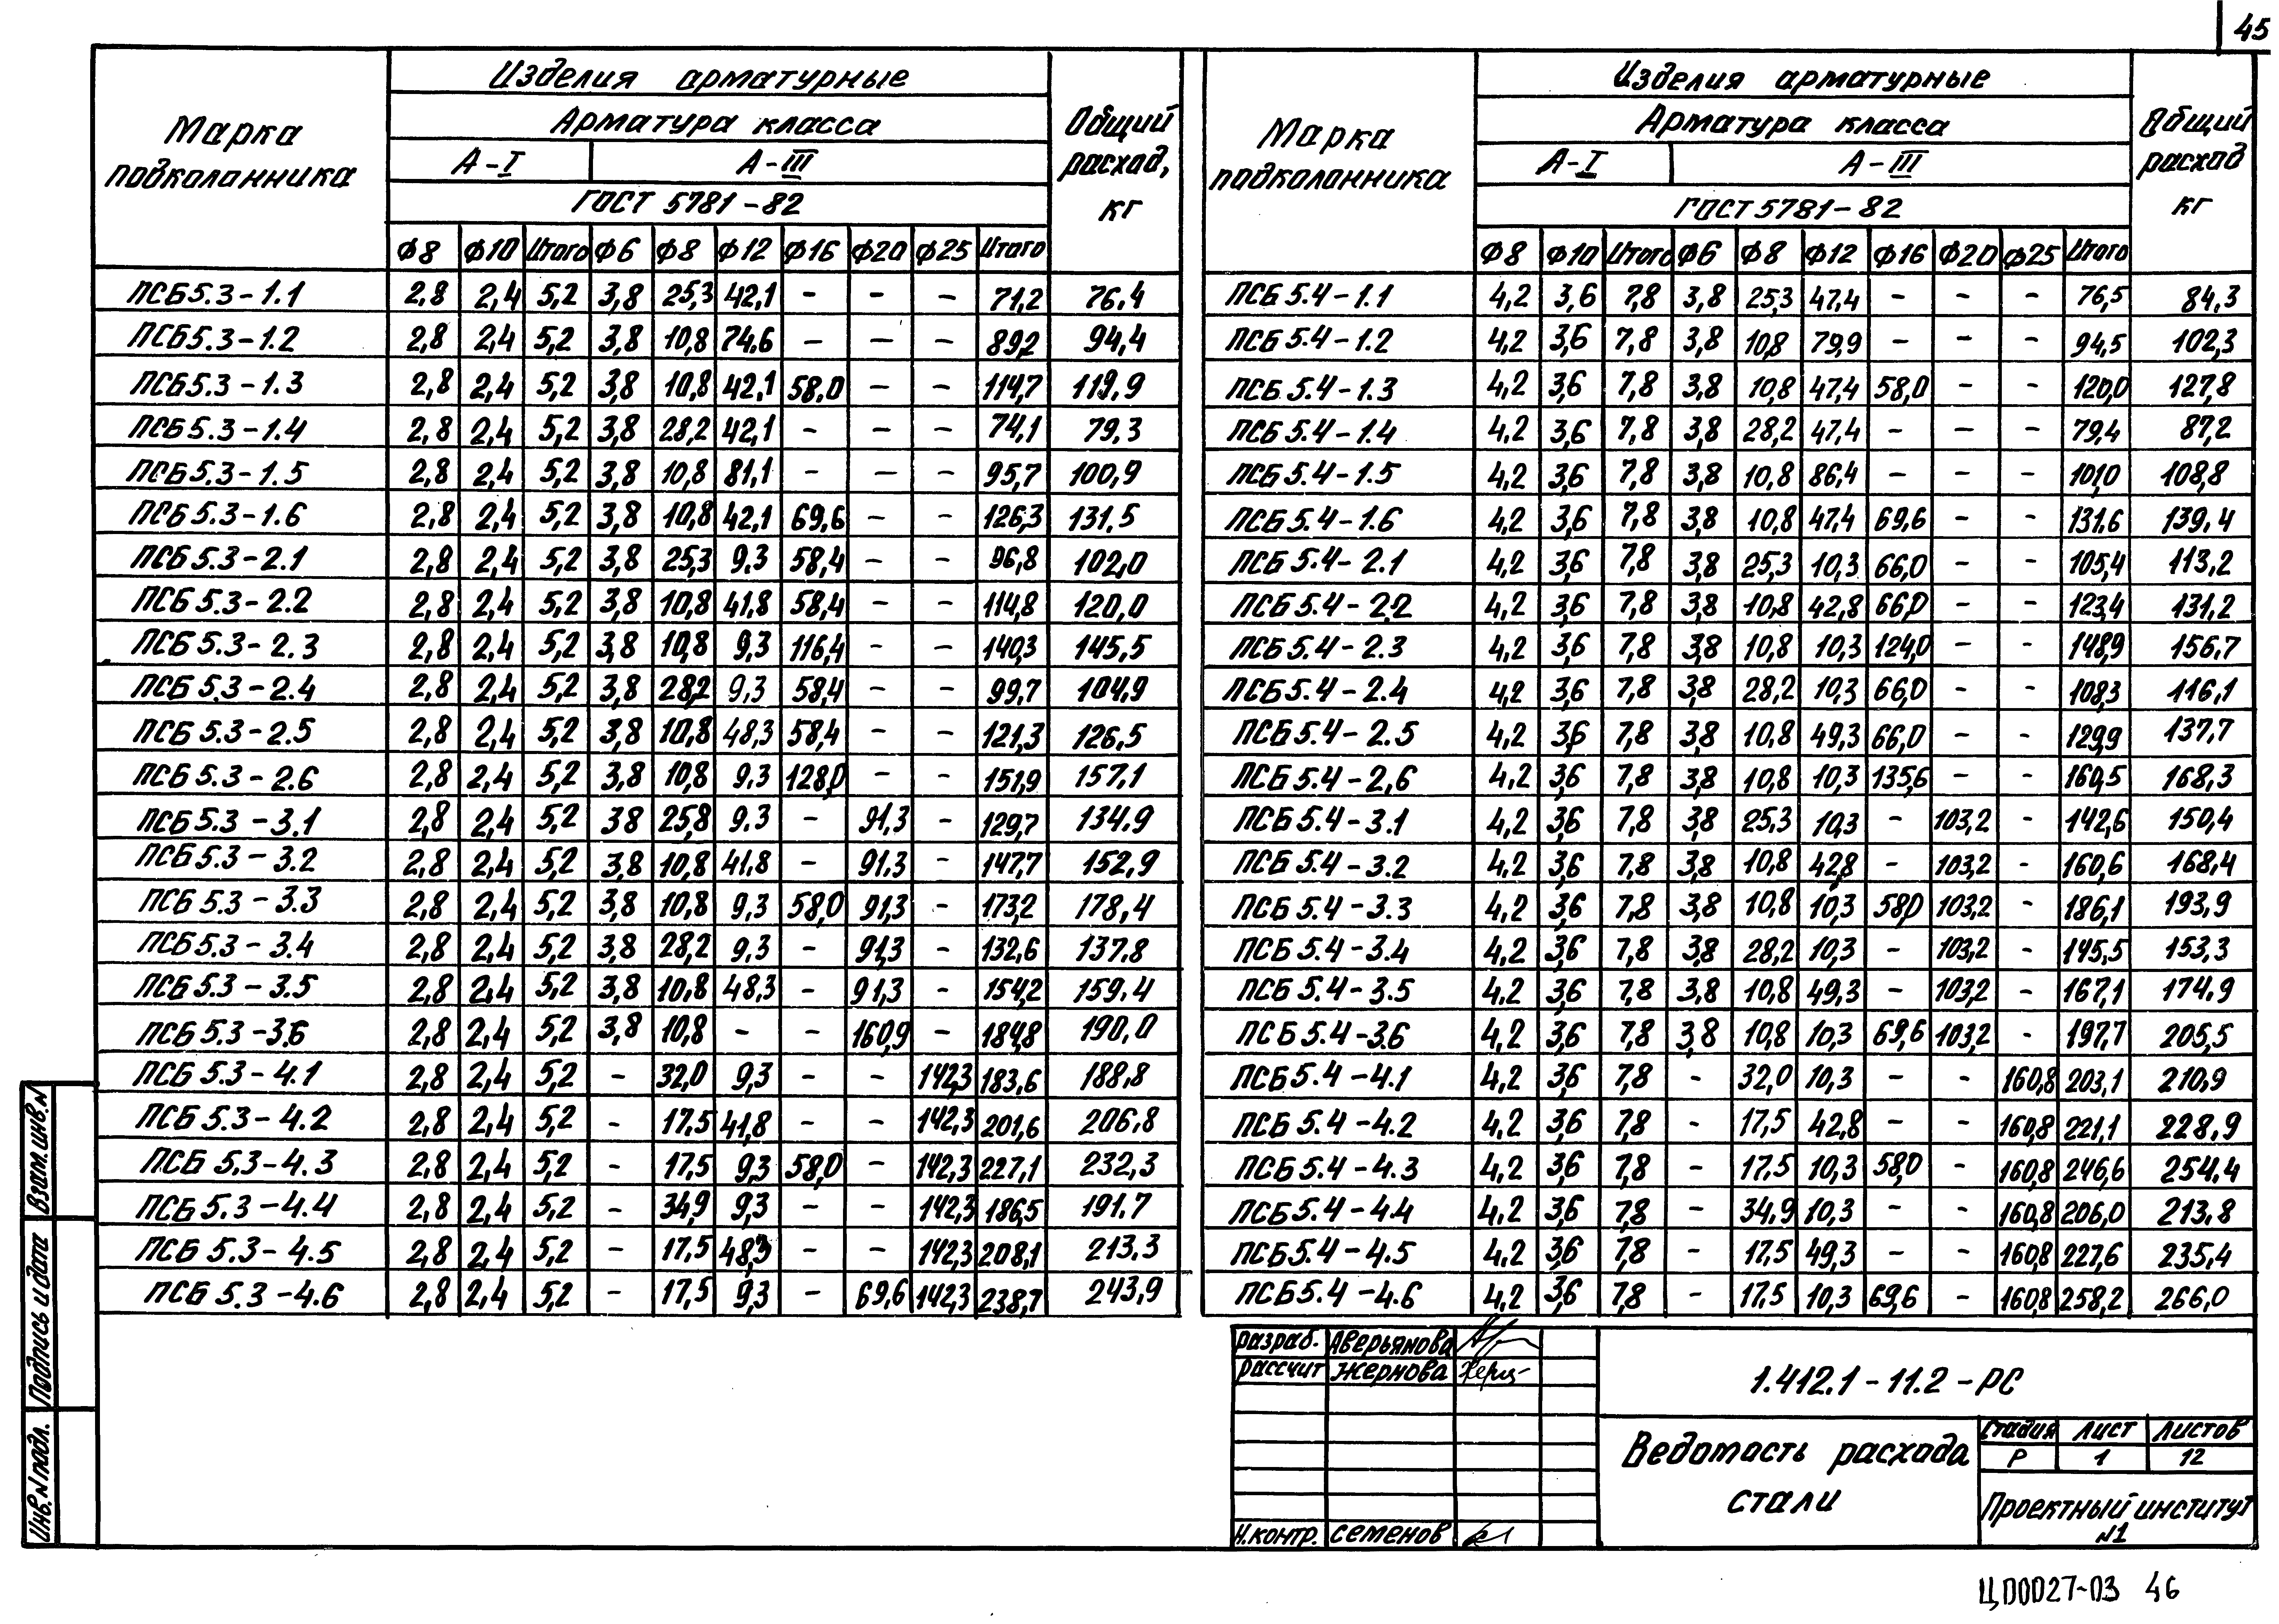 45
Марка подколонника | Изделия арматурные | Общий расход, кг
Арматура класса
А-I | А-III
ГОСТ 5781-82
Ф8 Ф10 Итого Ф6 Ф8 Ф12 Ф16 Ф20 Ф25 Итого
ПСБ5.3-1.1 2,8 2,4 5,2 3,8 25,3 42,1 - - - 71,2 76,4
ПСБ5.3-1.2 2,8 2,4 5,2 3,8 10,8 74,6 - - - 89,2 94,4
ПСБ5.3-1.3 2,8 2,4 5,2 3,8 10,8 42,1 58,0 - - 114,7 119,9
ПСБ5.3-1.4 2,8 2,4 5,2 3,8 28,2 42,1 - - - 74,1 79,3
ПСБ5.3-1.5 2,8 2,4 5,2 3,8 10,8 81,1 - - - 95,7 100,9
ПСБ5.3-1.6 2,8 2,4 5,2 3,8 10,8 42,1 69,6 - - 126,3 131,5
ПСБ5.3-2.1 2,8 2,4 5,2 3,8 25,3 9,3 58,4 - - 96,8 102,0
ПСБ5.3-2.2 2,8 2,4 5,2 3,8 10,8 41,8 58,4 - - 114,8 120,0
ПСБ5.3-2.3 2,8 2,4 5,2 3,8 10,8 9,3 116,4 - - 140,3 145,5
ПСБ5.3-2.4 2,8 2,4 5,2 3,8 28,2 9,3 58,4 - - 99,7 104,9
ПСБ5.3-2.5 2,8 2,4 5,2 3,8 10,8 48,3 58,4 - - 121,3 126,5
ПСБ5.3-2.6 2,8 2,4 5,2 3,8 10,8 9,3 128,0 - - 151,9 157,1
ПСБ5.3-3.1 2,8 2,4 5,2 38 25,8 9,3 - 91,3 - 129,7 134,9
ПСБ5.3-3.2 2,8 2,4 5,2 3,8 10,8 41,8 - 91,3 - 147,7 152,9
ПСБ5.3-3.3 2,8 2,4 5,2 3,8 10,8 9,3 58,0 91,3 - 173,2 178,4
ПСБ5.3-3.4 2,8 2,4 5,2 3,8 28,2 9,3 - 91,3 - 132,6 137,8
ПСБ5.3-3.5 2,8 2,4 5,2 3,8 10,8 48,3 - 91,3 - 154,2 159,4
ПСБ5.3-3.6 2,8 2,4 5,2 3,8 10,8 - - 160,9 - 184,8 190,0
ПСБ5.3-4.1 2,8 2,4 5,2 - 32,0 9,3 - - 142,3 183,6 188,8
ПСБ5.3-4.2 2,8 2,4 5,2 - 17,5 41,8 - - 142,3 201,6 206,8
ПСБ5.3-4.3 2,8 2,4 5,2 - 17,5 9,3 58,0 - 142,3 227,1 232,3
ПСБ5.3-4.4 2,8 2,4 5,2 - 34,9 9,3 - - 142,3 186,5 191,7
ПСБ5.3-4.5 2,8 2,4 5,2 - 17,5 48,3 - - 142,3 208,1 213,3
ПСБ5.3-4.6 2,8 2,4 5,2 - 17,5 9,3 - 69,6 142,3 238,7 243,9
Марка подколонника | Изделия арматурные | Общий расход кг
Арматура класса
А-I | А-III
ГОСТ 5781-82
Ф8 Ф10 Итого Ф6 Ф8 Ф12 Ф16 Ф20 Ф25 Итого
ПСБ5.4-1.1 4,2 3,6 7,8 3,8 25,3 47,4 - - - 76,5 84,3
ПСБ5.4-1.2 4,2 3,6 7,8 3,8 10,8 79,9 - - - 94,5 102,3
ПСБ5.4-1.3 4,2 3,6 7,8 3,8 10,8 47,4 58,0 - - 120,0 127,8
ПСБ5.4-1.4 4,2 3,6 7,8 3,8 28,2 47,4 - - - 79,4 87,2
ПСБ5.4-1.5 4,2 3,6 7,8 3,8 10,8 86,4 - - - 101,0 108,8
ПСБ5.4-1.6 4,2 3,6 7,8 3,8 10,8 47,4 69,6 - - 131,6 139,4
ПСБ5.4-2.1 4,2 3,6 7,8 3,8 25,3 10,3 66,0 - - 105,4 113,2
ПСБ5.4-2.2 4,2 3,6 7,8 3,8 10,8 42,8 66,0 - - 123,4 131,2
ПСБ5.4-2.3 4,2 3,6 7,8 3,8 10,8 10,3 124,0 - - 148,9 156,7
ПСБ5.4-2.4 4,2 3,6 7,8 3,8 28,2 10,3 66,0 - - 108,3 116,1
ПСБ5.4-2.5 4,2 3,6 7,8 3,8 10,8 49,3 66,0 - - 129,9 137,7
ПСБ5.4-2,6 4,2 3,6 7,8 3,8 10,8 10,3 135,6 - - 160,5 168,3
ПСБ5.4-3.1 4,2 3,6 7,8 3,8 25,3 10,3 - 103,2 - 142,6 150,4
ПСБ5.4-3.2 4,2 3,6 7,8 3,8 10,8 42,8 - 103,2 - 160,6 168,4
ПСБ5.4-3.3 4,2 3,6 7,8 3,8 10,8 10,3 58,0 103,2 - 186,1 193,9
ПСБ5.4-3.4 4,2 3,6 7,8 3,8 28,2 10,3 - 103,2 - 145,5 153,3
ПСБ5.4-3.5 4,2 3,6 7,8 3,8 10,8 49,3 - 103,2 - 167,1 174,9
ПСБ5.4-3.6 4,2 3,6 7,8 3,8 10,8 10,3 69,6 103,2 - 197,7 205,5
ПСБ5.4-4.1 4,2 3,6 7,8 - 32,0 10,3 - - 160,8 203,1 210,9
ПСБ5.4-4.2 4,2 3,6 7,8 - 17,5 42,8 - - 160,8 221,1 228,9
ПСБ5.4-4.3 4,2 3,6 7,8 - 17,5 10,3 58,0 - 160,8 246,6 254,4
ПСБ5.4-4.4 4,2 3,6 7,8 - 34,9 10,3 - - 160,8 206,0 213,8
ПСБ5.4-4.5 4,2 3,6 7,8 - 17,5 49,3 - - 160,8 227,6 235,4
ПСБ5.4-4.6 4,2 3,6 7,8 - 17,5 10,3 69,6 - 160,8 258,2 266,0
Инв.N подл. Подпись и дата Взам.инв.N
разраб. Аверьянова
рассчит Жернова
Н.контр. Семенов
1.412.1-11.2-РС
Ведомость расхода
стали
Стадия Лист Листов
Р 1 12
Проектный институт
N1
Ц00027-03 46